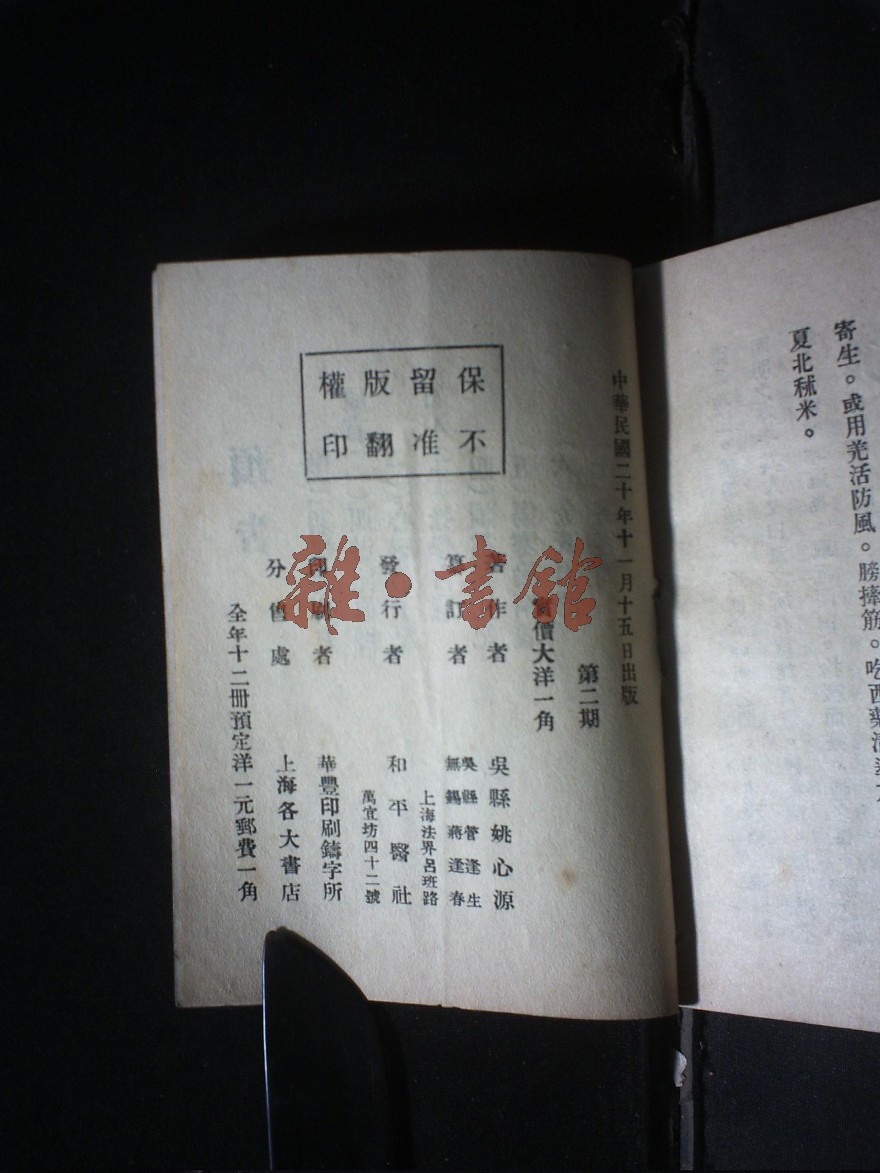 寄生。或用羌活防風。膀摔筋。吃西藥清
夏北秫米。
中華民國二十年十一月十五日出版
第二期
實價大洋一角
保留版權
不准翻印
著作者 吳縣姚心源
纂訂者 吳縣管逢生
無錫蔣逢春
發行者 和平醫社
上海法界呂班路
萬宜坊四十二號
印刷者 華豐印刷鑄字所
分售處 上海各大書店
全年十二冊預定洋一元郵費一角
雜·書館